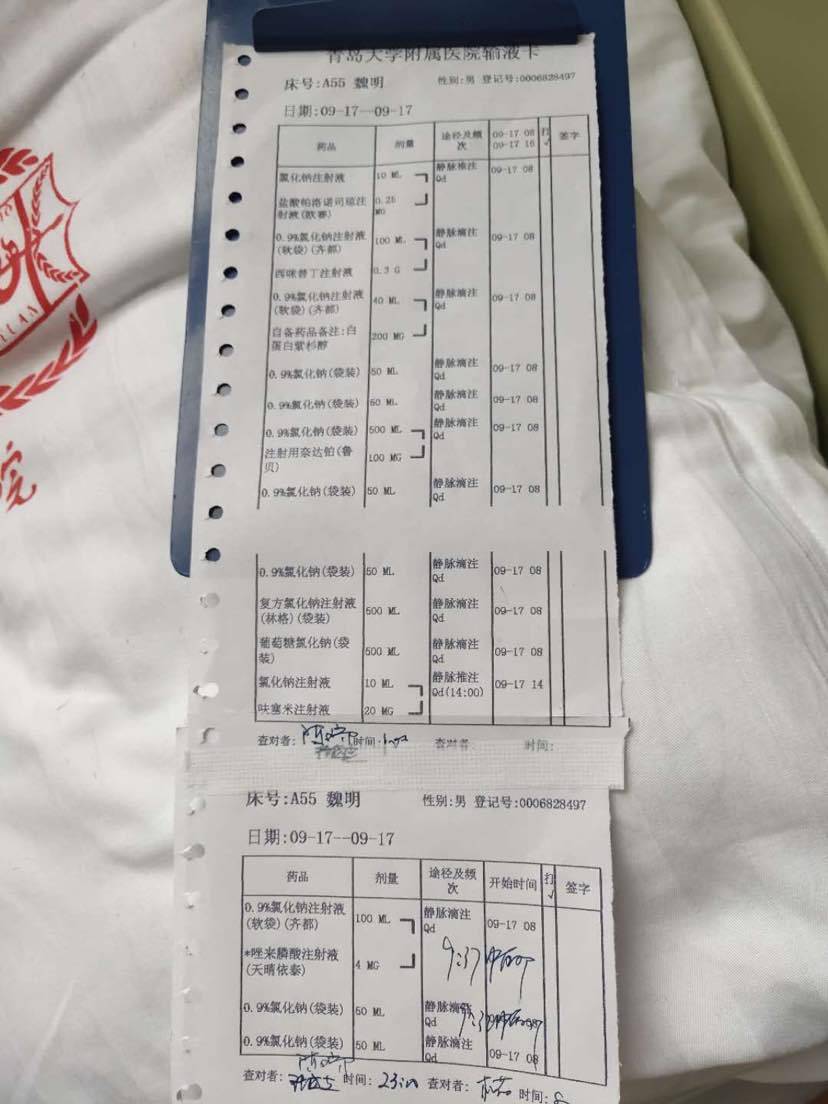 青岛大学附属医院输液卡
床号:A55 魏明 性别:男 登记号:0006828497
日期:09-17--09-17
药品 剂量 途径及频次 09-17 08 09-17 16 打√ 签字
氯化钠注射液 10 ML 静脉推注 Qd 09-17 08
盐酸帕洛诺司琼注射液(欧赛) 0.25 MG
0.9%氯化钠注射液(软袋)(齐都) 100 ML 静脉滴注 Qd 09-17 08
西咪替丁注射液 0.3 G
0.9%氯化钠注射液(软袋)(齐都) 40 ML 静脉滴注 Qd 09-17 08
自备药品备注:白蛋白紫杉醇 200 MG
0.9%氯化钠(袋装) 50 ML 静脉滴注 Qd 09-17 08
0.9%氯化钠(袋装) 50 ML 静脉滴注 Qd 09-17 08
0.9%氯化钠(袋装) 500 ML 静脉滴注 Qd 09-17 08
注射用奈达铂(鲁贝) 100 MG
0.9%氯化钠(袋装) 50 ML 静脉滴注 Qd 09-17 08
0.9%氯化钠(袋装) 50 ML 静脉滴注 Qd 09-17 08
复方氯化钠注射液(林格)(袋装) 500 ML 静脉滴注 Qd 09-17 08
葡萄糖氯化钠(袋装) 500 ML 静脉滴注 Qd 09-17 08
氯化钠注射液 10 ML 静脉推注 Qd(14:00) 09-17 14
呋塞米注射液 20 MG
查对者: 时间: 查对者: 时间:
床号:A55 魏明 性别:男 登记号:0006828497
日期:09-17--09-17
药品 剂量 途径及频次 开始时间 打√ 签字
0.9%氯化钠注射液(软袋)(齐都) 100 ML 静脉滴注 Qd 09-17 08
*唑来膦酸注射液(天晴依泰) 4 MG 9:37
0.9%氯化钠(袋装) 50 ML 静脉滴注 Qd
0.9%氯化钠(袋装) 50 ML 静脉滴注 Qd 09-17 08
查对者: 时间: 查对者: 时间:
院